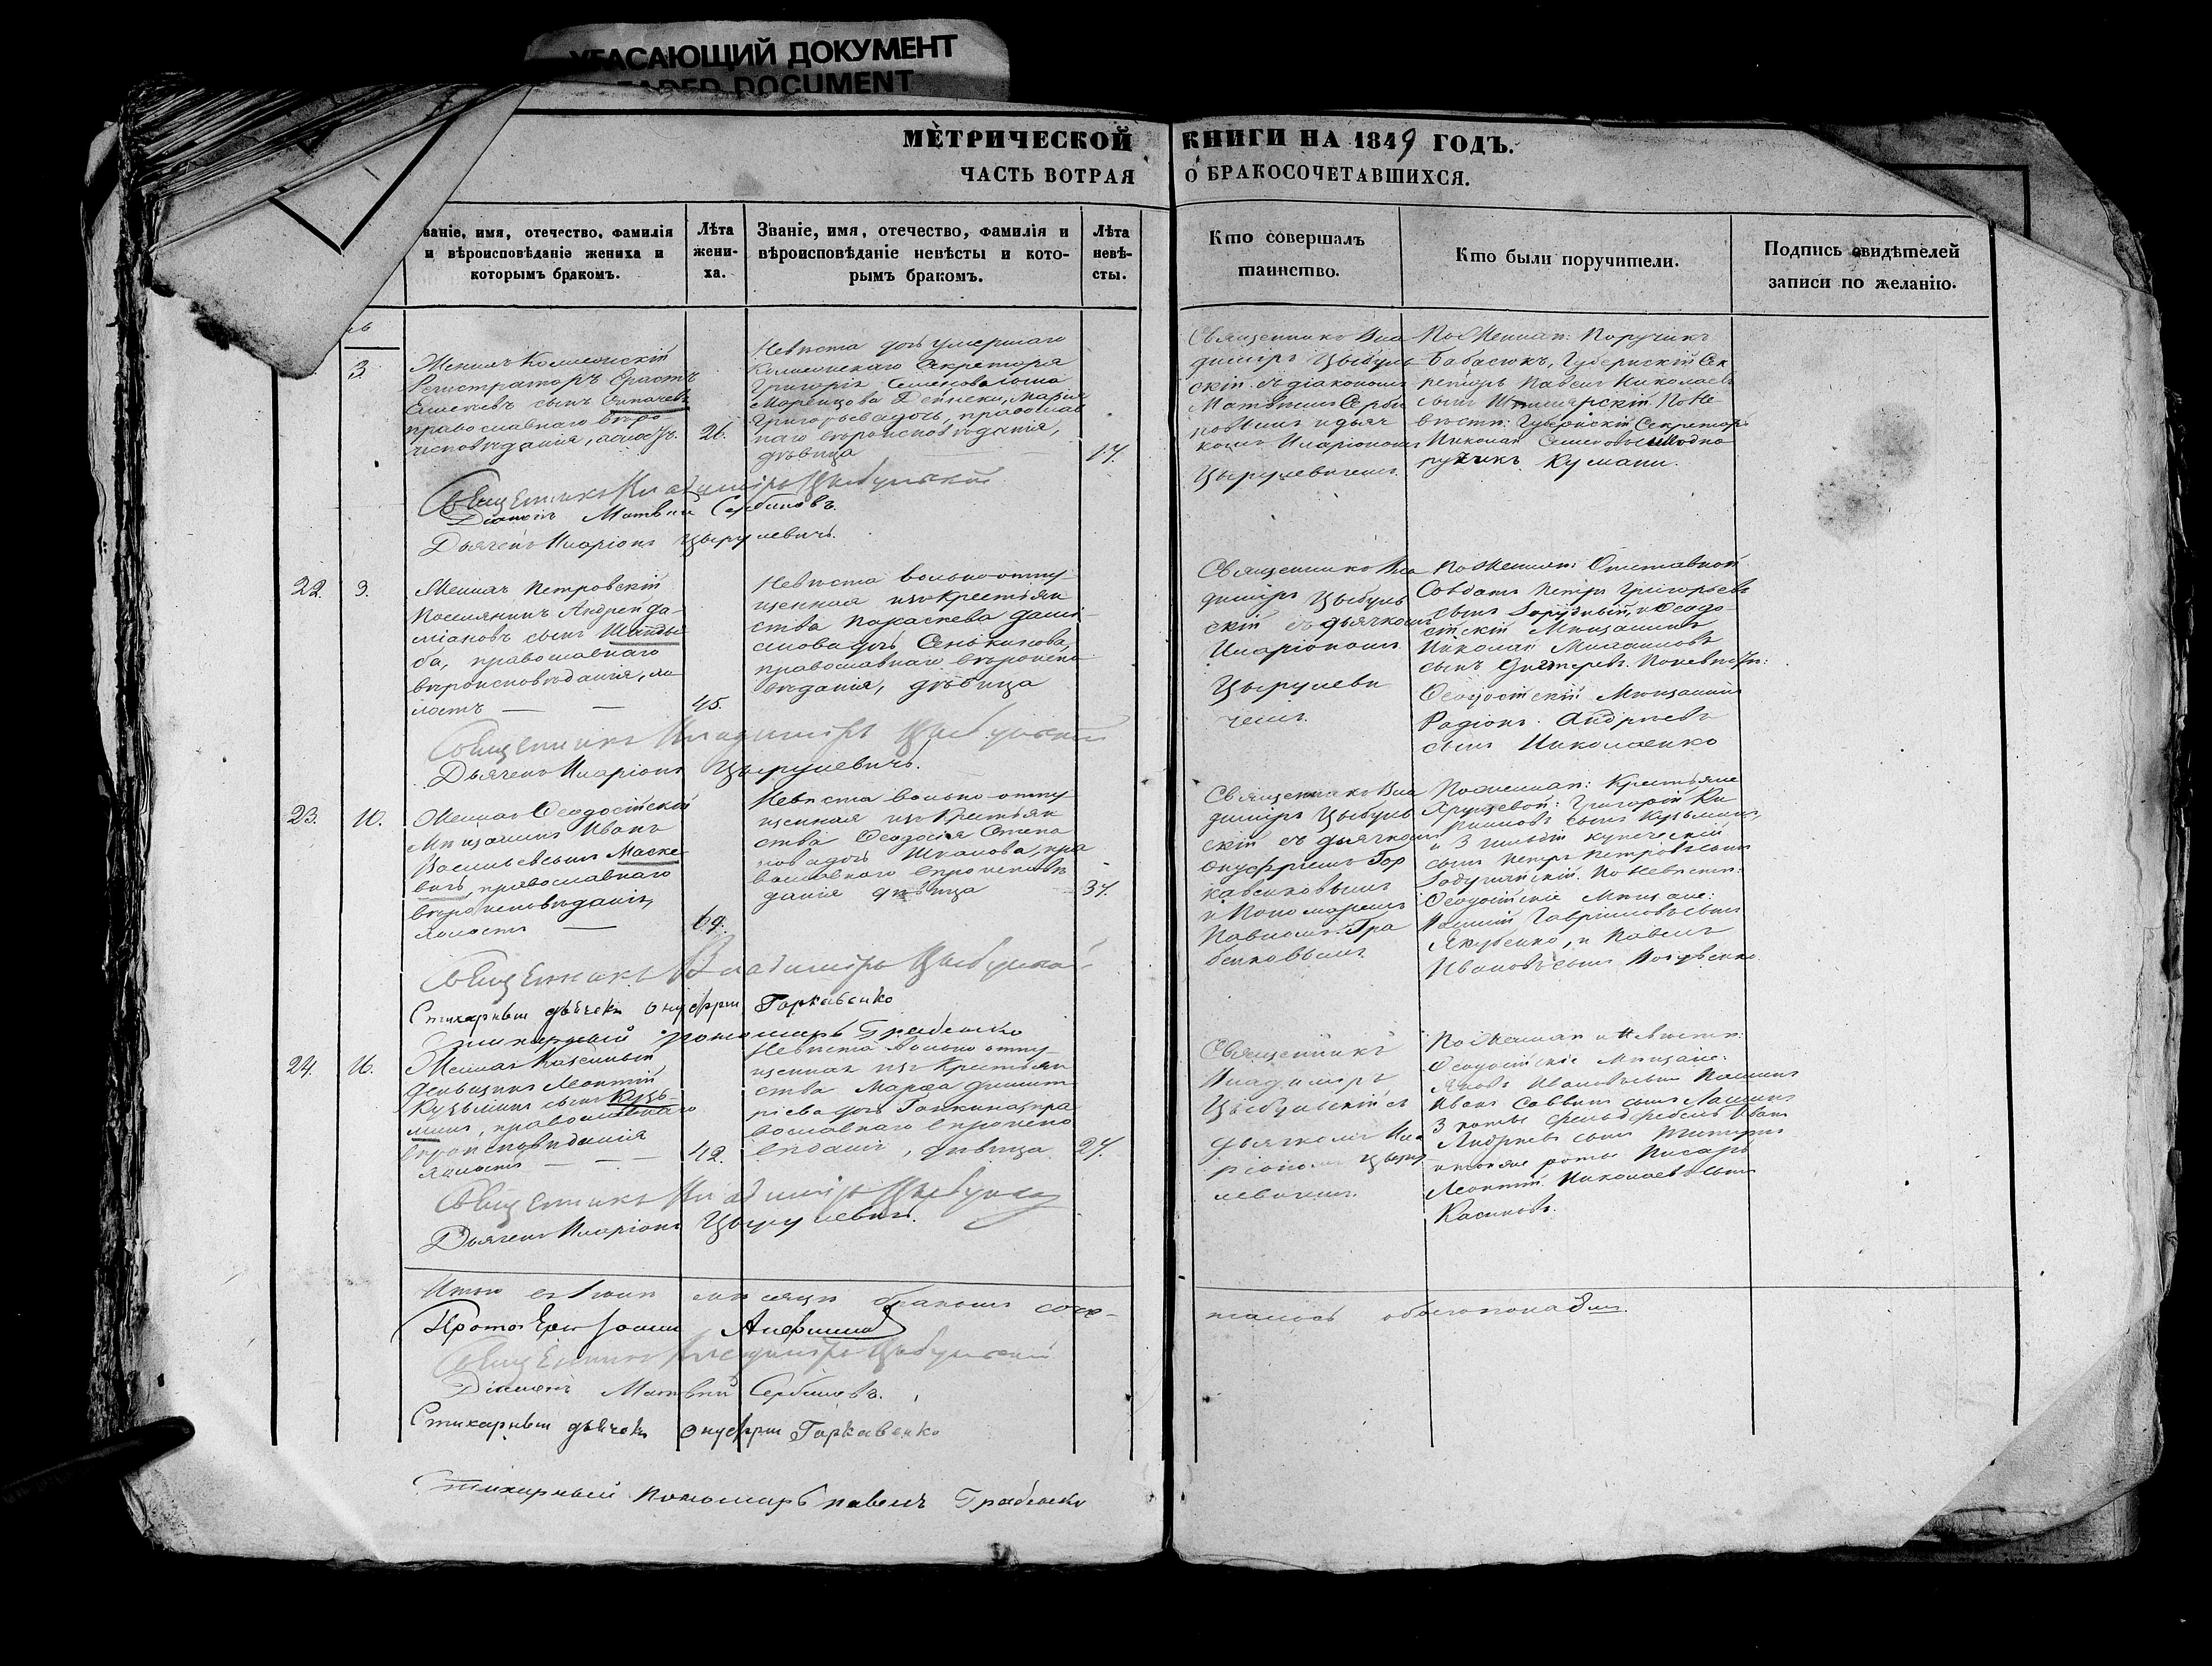 УГАСАЮЩИЙ ДОКУМЕНТ
FADED DOCUMENT
МЕТРИЧЕСКОЙ КНИГИ НА 1849 ГОДЪ.
ЧАСТЬ ВОТРАЯ О БРАКОСОЧЕТАВШИХСЯ.
званіе, имя, отечество, фамилія
и вѣроисповѣданіе жениха и
которымъ бракомъ.
Лѣта
жени-
ха.
Званіе, имя, отечество, фамилія и
вѣроисповѣданіе невѣсты и кото-
рымъ бракомъ.
Лѣта
невѣ-
сты.
Кто совершалъ
таинство.
Кто были поручители.
Подпись свидѣтелей
записи по желанію.
3
Женихъ Коллежскій
Регистраторъ Ерастъ
сынъ
православнаго вѣро
исповѣданія, холостъ.
26.
Невѣста дочь умершаго
Коллежскаго Секретаря
Григорія Семенова сына
Марія
Григорьева дочь, православ
наго вѣроисповѣданія,
дѣвица
17.
Священникъ Вла
диміръ Цыбуль
скій съ діакономъ
Матвѣемъ Серби
новымъ и дьяч
комъ Иларіономъ
Цырулевичемъ.
По Женихѣ: Поручикъ
Губернскій Сек
ретарь Павелъ Николаевъ
сынъ По Не
вѣстѣ: Губернскій Секретарь
Николай Семеновъ
Кумани.
Священникъ Владиміръ Цыбульскій
Діаконъ Матвѣй Сербиновъ.
Дьячекъ Иларіонъ Цырулевичъ.
22. 9.
Женихъ Петровскій
Поселянинъ Андрей Да-
міановъ сынъ
ба, православнаго
вѣроисповѣданія, хо
лостъ
45.
Невѣста вольноотпу
щенная изъ Крестьян
ства Параскева Дани-
лова дочь Сенькизова,
православнаго вѣроиспо
вѣданія, дѣвица
Священникъ Вла
диміръ Цыбуль
скій съ дьячкомъ
Иларіономъ
Цырулеви
чемъ.
По Женихѣ: Отставной
Солдатъ Петръ Григорьевъ
сынъ и Ѳеодо
сійскій Мѣщанинъ
Николай
сынъ По невѣстѣ:
Ѳеодосійскій Мѣщанинъ
Радіонъ Андреевъ
сынъ Николаенко
Священникъ Владиміръ Цыбульскій
Дьячекъ Иларіонъ Цырулевичъ.
23. 10.
Женихъ Ѳеодосійскій
Мѣщанинъ Иванъ
Васильевъ сынъ Маске
вичъ, православнаго
вѣроисповѣданія,
холостъ
69.
Невѣста вольно-отпу
щенная изъ Крестьян
ства Ѳеодосія Степа
нова дочь Шкапова, пра
вославнаго вѣроисповѣ
данія дѣвица
37.
Священникъ Вла
диміръ Цыбуль
скій съ дьячкомъ
Онуфріемъ Гор
кавенковымъ
и Пономаремъ
Павломъ Гра
бенковымъ
По женихѣ: Крестьяне
Григорій
сынъ Кузьминъ,
и 3 гильдіи купеческій
сынъ Петръ Петровъ сынъ
По Невѣстѣ:
Ѳеодосійскіе Мѣщане:
Гавриловъ сынъ
Якубенко, и Павелъ
Ивановъ сынъ
Священникъ Владиміръ Цыбульскій
Стихарный дьячекъ Онуфрій Горкавенко
Стихарный пономарь Грабенко
24. 16.
Женихъ Казенный
Денщикъ Леонтій
Кузьминъ сынъ Кузь-
минъ, православнаго
вѣроисповѣданія
холостъ
42.
Невѣста вольно отпу
щенная изъ Крестьян
ства Марѳа Димит
ріева дочь Галкина, пра
вославнаго вѣроиспо
вѣданія, дѣвица
27.
Священникъ
Владиміръ
Цыбульскій съ
дьячкомъ Ила
ріономъ Цыру
левичемъ.
По Женихѣ и Невѣстѣ:
Ѳеодосійскіе Мѣщане:
Яковъ Ивановъ сынъ
Иванъ Саввинъ сынъ
3 роты Фельдфебель Иванъ
Андреевъ сынъ
роты Писарь
Леонтій Николаевъ сынъ
Касиновъ.
Священникъ Владиміръ Цыбульскій
Дьячекъ Иларіонъ Цырулевичъ.
Итого въ Іюнѣ мѣсяцѣ бракомъ соче-
талось обоего пола
Протоіерей Іоаннъ
Священникъ Владиміръ Цыбульскій
Діаконъ Матвѣй Сербиновъ.
Стихарный дьячекъ Онуфрій Горкавенко
Стихарный Пономарь Павелъ Грабенко